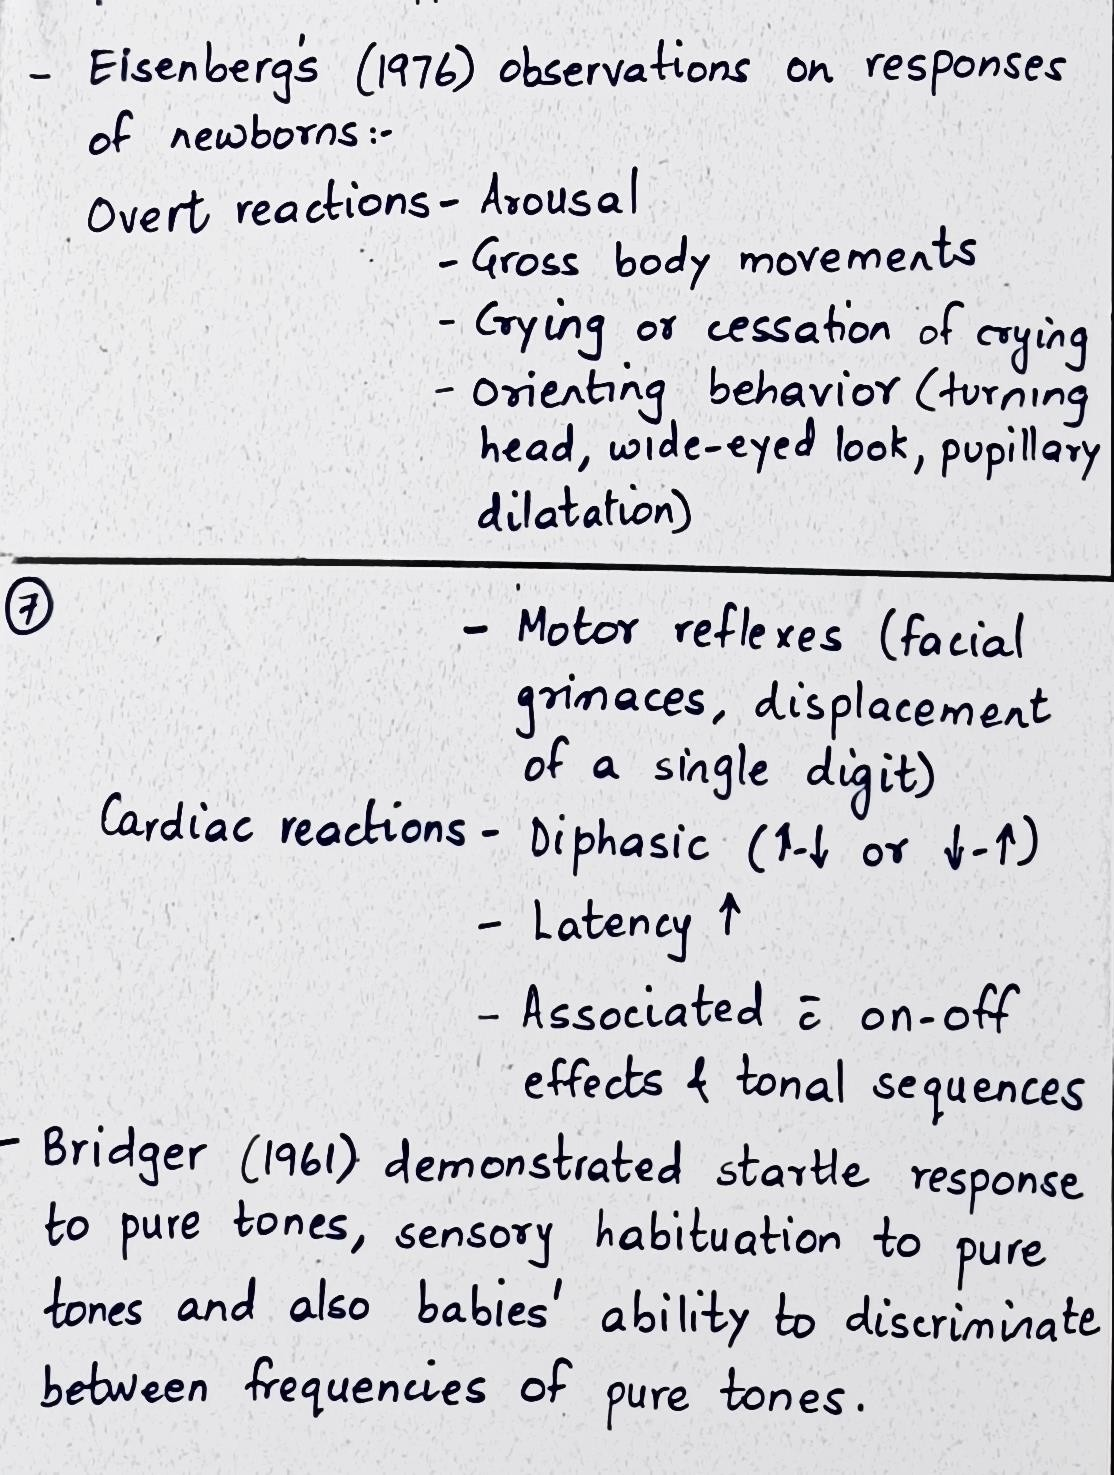 - Eisenberg's (1976) observations on responses
of newborns:-
Overt reactions - Arousal
- Gross body movements
- Crying or cessation of crying
- Orienting behavior (turning
head, wide-eyed look, pupillary
dilatation)
7
- Motor reflexes (facial
grimaces, displacement
of a single digit)
Cardiac reactions - Diphasic (↑-↓ or ↓-↑)
- Latency ↑
- Associated c̄ on-off
effects & tonal sequences
- Bridger (1961) demonstrated startle response
to pure tones, sensory habituation to pure
tones and also babies' ability to discriminate
between frequencies of pure tones.